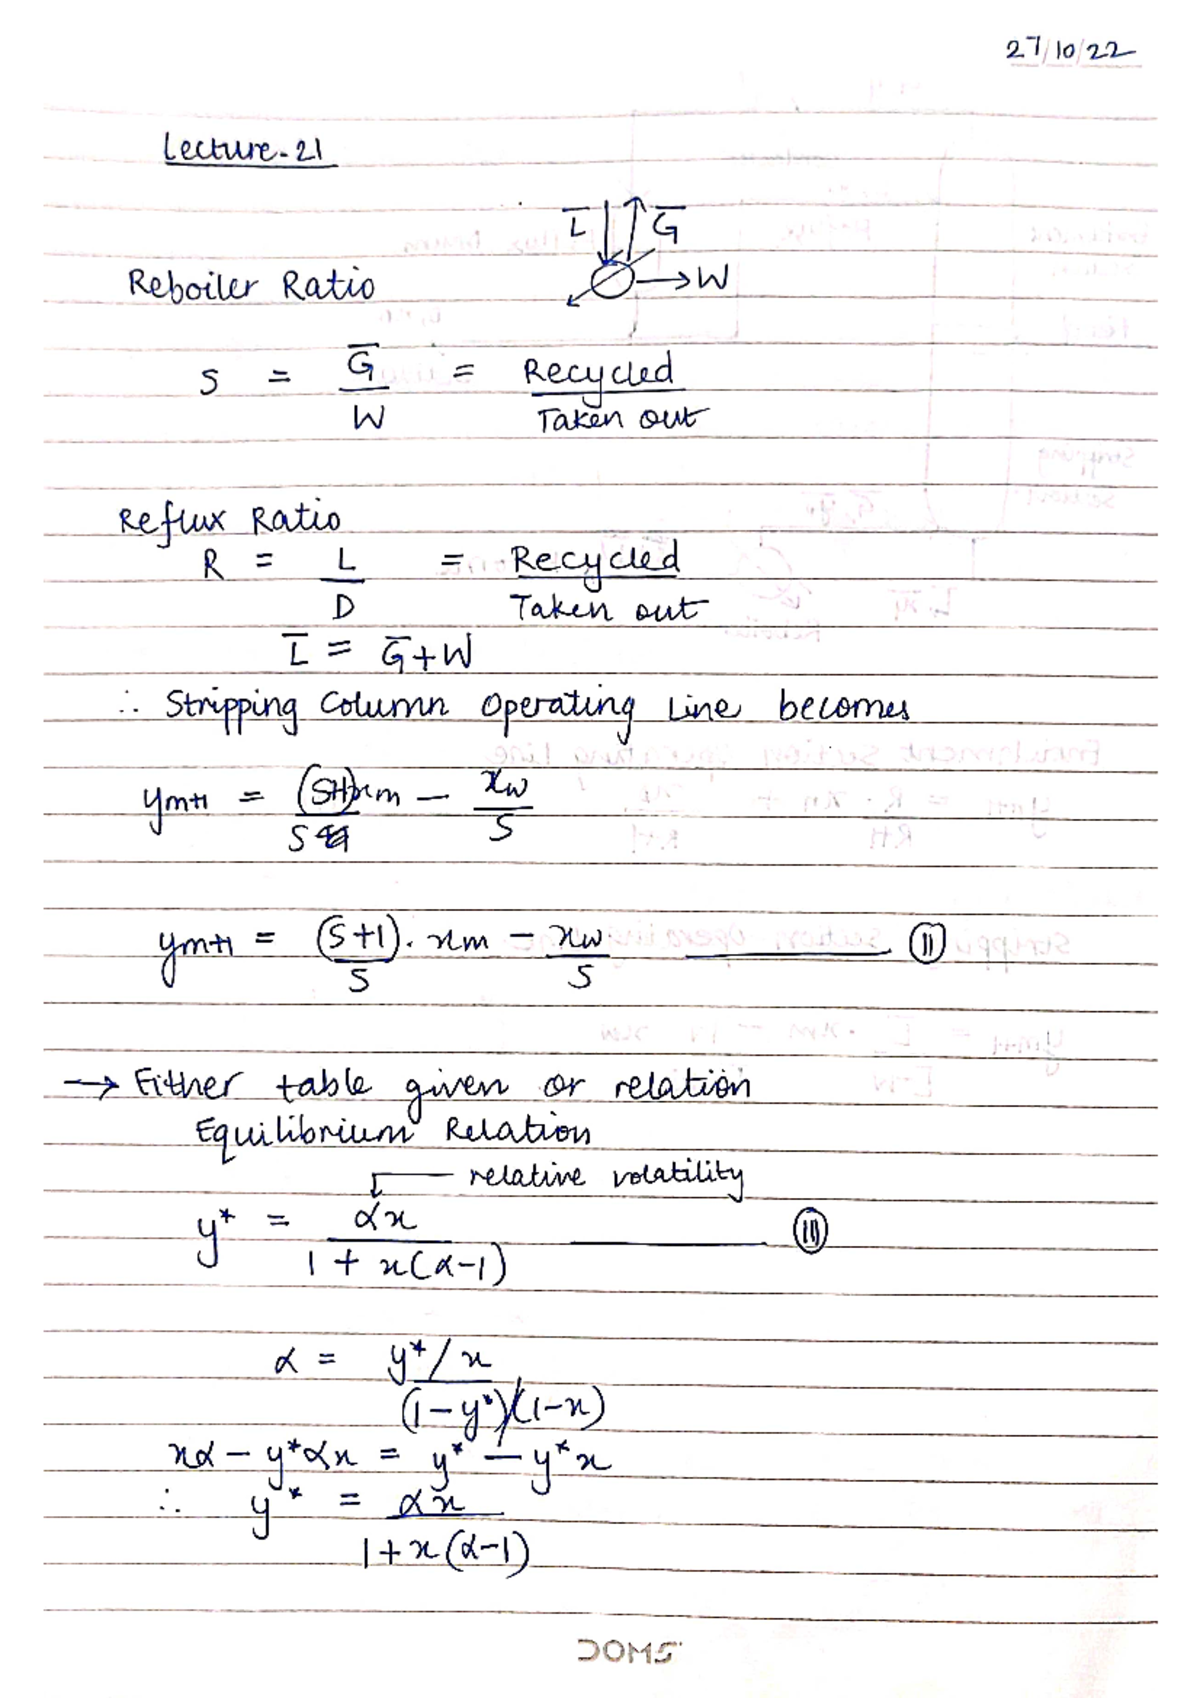 27/10/22
Lecture-21
L̅ G̅
W
Reboiler Ratio
S = G̅/W = Recycled/Taken out
Reflux Ratio
R = L/D = Recycled/Taken out
L̅ = G̅+W
∴ Stripping Column Operating Line becomes
ym+1 = (S+1)xm/S − xw/S
ym+1 = (S+1)/S . xm − xw/S ——— (II)
→ Either table given or relation
Equilibrium Relation
relative volatility
y* = αx/(1 + x(α−1)) ——— (III)
α = (y*/x)/((1−y*)/(1−x))
xα − y*αx = y* − y*x
∴ y* = αx/(1+x(α−1))
DOMS